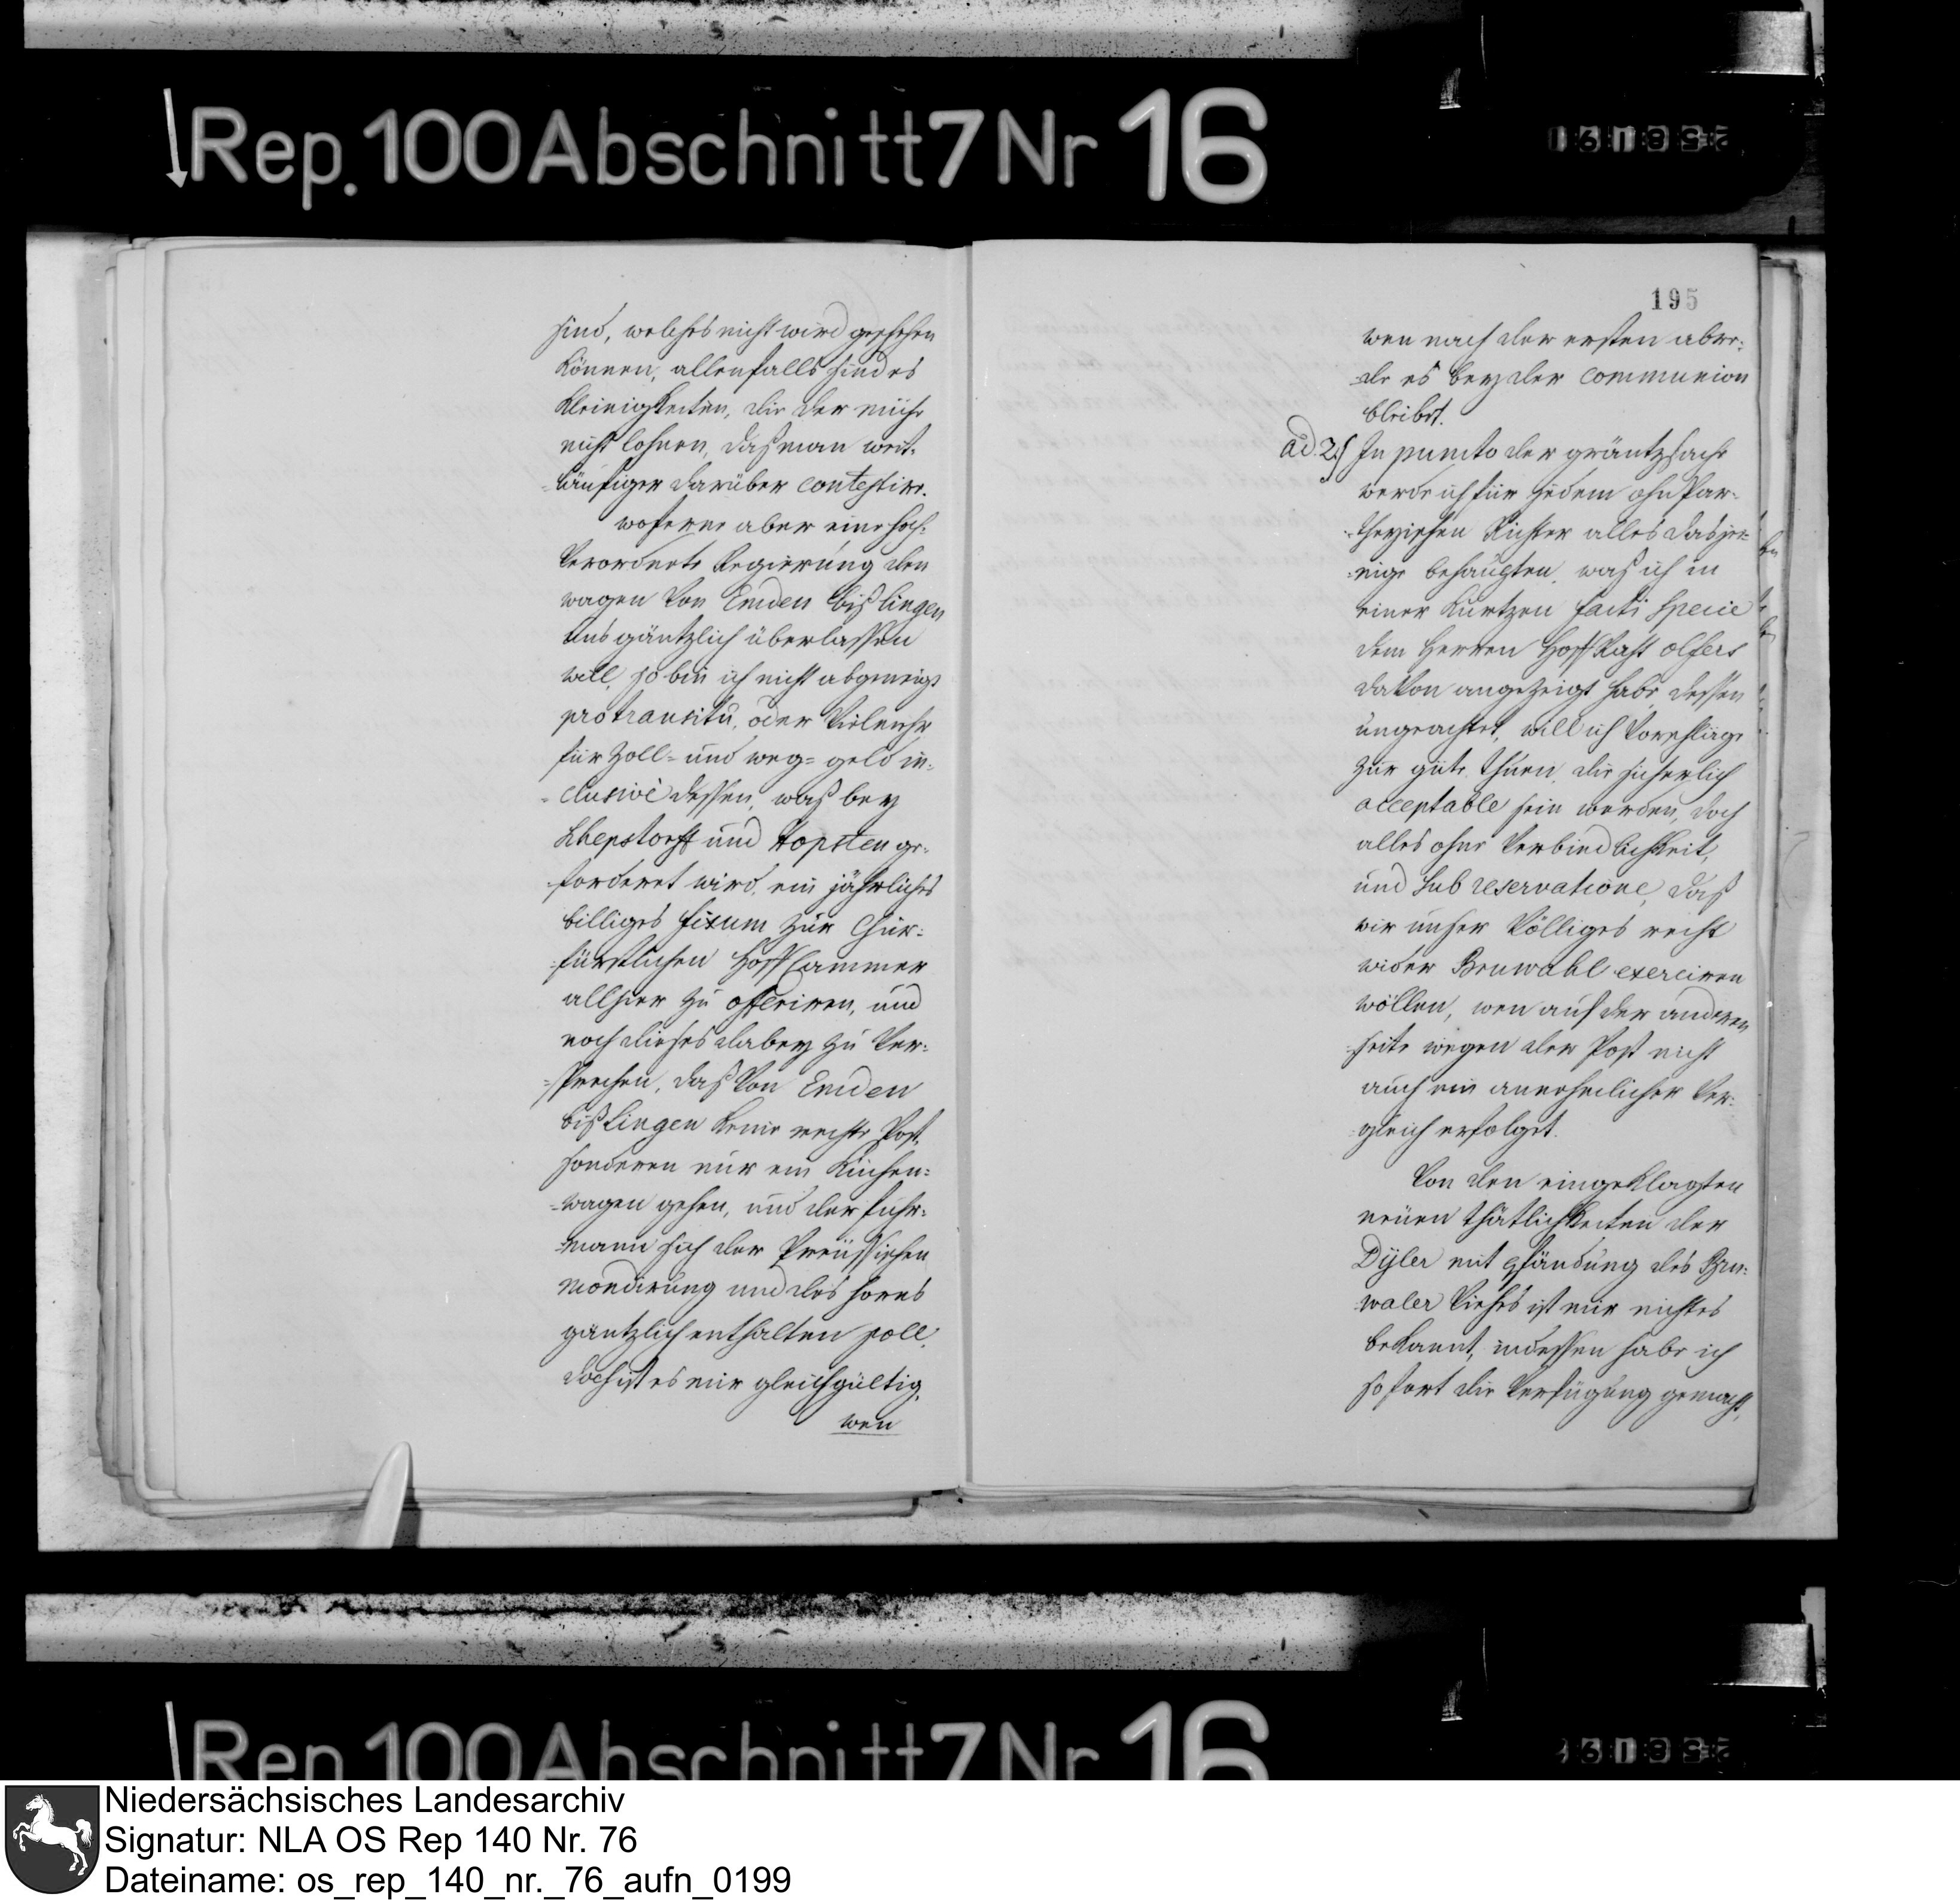 Rep. 100 Abschnitt 7 Nr 16
sind, welches nicht wird geschehen
können, allenfalls sind es
Kleinigkeiten, die der mühe
nicht lohnen, daß man weit-
läufiger darüber contestire.
woferne aber eine hoch-
verordnete Regierung den
wagen von Emden biß lingen
uns gäntzlich überlassen
will, so bin ich nicht abgeneigt
pro transitu, oder vielmehr
für Zoll= und weg= geld in-
-clusivè dessen, waß bey
und Hopsten ge-
forderet wird, ein jährliches
billiges fixum zur Chur-
fürstlichen HoffCammer
allhier zu offeriren, und
noch dieses dabey zu ver-
sprechen, daß von Emden
biß Lingen keine rechte Post,
sonderen nur ein Küchen-
wagen gehen, und der fuhr-
mann sich der Preüssischen
mondirung und des horns
gäntzlich enthalten soll.
doch ist es mir gleichgültig,
wen
195
wen nach der ersten abre-
de es bey der communion
bleibet.
ad. 2.) In puncto der gräntzsache
werde ich für jedem ohnpar-
theyischen Richter alles dasje-
nige behaupten, waß ich in
einer kurtzen facti specie
dem Herren HoffRaht olfers
davon angezeigt habe, dessen
ungeachtet, will ich vorschläge
zur güte thuen, die sicherlich
acceptable sein werden, doch
alles ohne verbindlichkeit,
und sub reservatione, daß
wir unser völliges recht
wider exerciren
wöllen, wen auf der anderen
seite wegen der Post nicht
auch ein annehmlicher ver-
gleich erfolget.
Von den eingeklagten
neüen thätlichkeiten der
mit pfändung des
viehes ist mir nichtes
bekannt, indessen habe ich
sofort die verfügung gemacht,
Rep. 100 Abschnitt 7 Nr 16
Niedersächsisches Landesarchiv
Signatur: NLA OS Rep 140 Nr. 76
Dateiname: os_rep_140_nr._76_aufn_0199